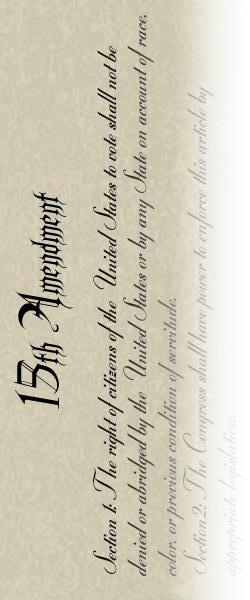 15th Amendment
Section 1: The right of citizens of the United States to vote shall not be
denied or abridged by the United States or by any State on account of race,
color, or previous condition of servitude.
Section 2: The Congress shall have power to enforce this article by
appropriate legislation.